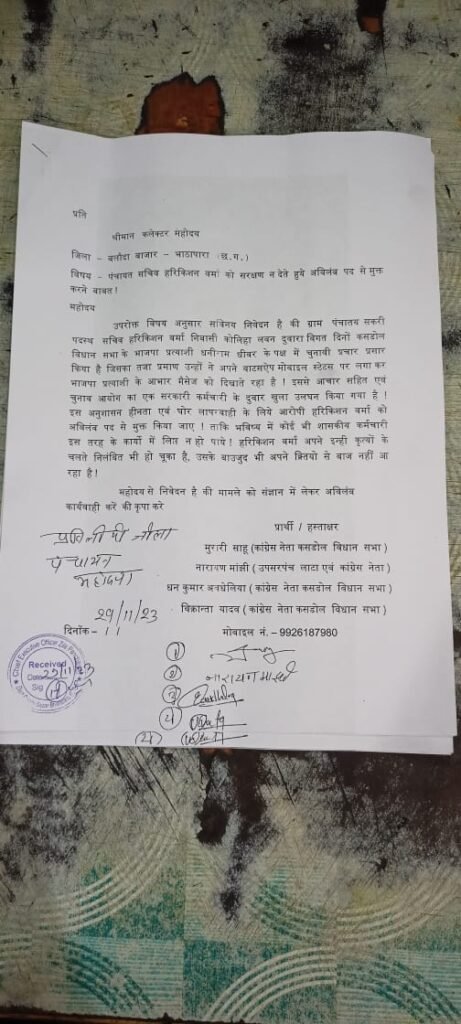 प्रति
श्रीमान कलेक्टर महोदय
जिला - बलौदा बाजार - भाठापारा (छ.ग.)
विषय - पंचायत सचिव हरिकिशन वर्मा को सरक्षण न देते हुये अविलंब पद से मुक्त
करने बाबत!
महोदय
उपरोक्त विषय अनुसार सविनय निवेदन है की ग्राम पंचातय सकरी
पदस्थ सचिव हरिकिशन वर्मा निवासी कोलिहा लवन दुवारा विगत दिनों कसडोल
विधान सभा के भाजपा प्रत्याशी धनीराम धीवर के पक्ष में चुनावी प्रचार प्रसार
किया है जिसका तजा प्रमाण उन्हों ने अपने वाटसऐप मोबाइल स्टेटस पर लगा कर
भाजपा प्रत्याशी के आभार मैसेज को दिखाते रहा है ! इससे आचार सहित एवं
चुनाव आयोग का एक सरकारी कर्मचारी के दुवार खुला उलघन किया गया है !
इस अनुशासन हीनता एवं घोर लापरवाही के लिये आरोपी हरिकिशन वर्मा को
अविलंब पद से मुक्त किया जाए ! ताकि भविष्य में कोई भी शासकीय कर्मचारी
इस तरह के कार्यो में लिप्त न हो पाये ! हरिकिशन वर्मा अपने इन्ही कृत्यो के
चलते निलंबित भी हो चूका है, उसके बाउजुद भी अपने क्रितयो से बाज नही आ
रहा है !
महोदय से निवेदन है की मामले को संज्ञान में लेकर अविलंब
कार्यवाही करें की कृपा करे
प्रार्थी / हस्ताक्षर
मुरारी साहू (कांग्रेस नेता कसडोल विधान सभा)
नारायण मांझी (उपसरपंच लाटा एवं कांग्रेस नेता)
धन कुमार अवधेलिया (कांग्रेस नेता कसडोल विधान सभा)
विक्रान्ता यादव (कांग्रेस नेता कसडोल विधान सभा)
मोबाइल नं. - 9926187980
जिला
पंचायत
महोदय
29/11/23
दिनाँक -
Chief Executive Officer Zila
Received
Sig
①
②
③
④